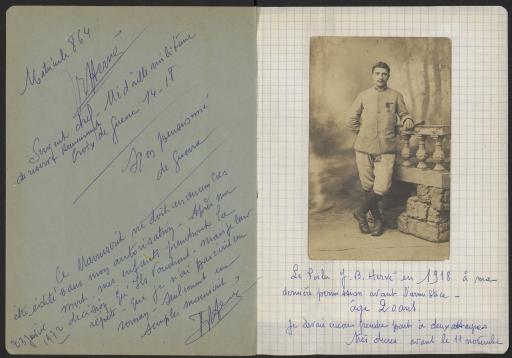 Matricule 864
J B Hervé
Sergent chef Médaille militaire
de réserve
Croix de Guerre 14-18
Non pensionné
de Guerre
Ce Manuscrit ne doit en aucun cas
être édité sans mon autorisation. Après ma
mort, mes enfants prendront la
décision qu'ils voudront - mais je leur
répète que je n'ai pas écrit un
roman, seulement un
simple manuscrit.
23 janv. 1972
J B Hervé
Le Poilu J. B. Hervé en 1918 à ma
dernière permission avant l'armistice -
âge 20 ans
Je devais encore prendre part à deux attaques
très dures avant le 11 novembre